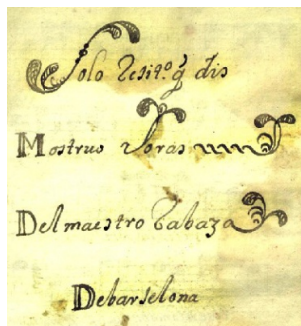 Solo Resitº q̃ dis
Mostruo Voras
Del maestro Rabaza
Debarselona